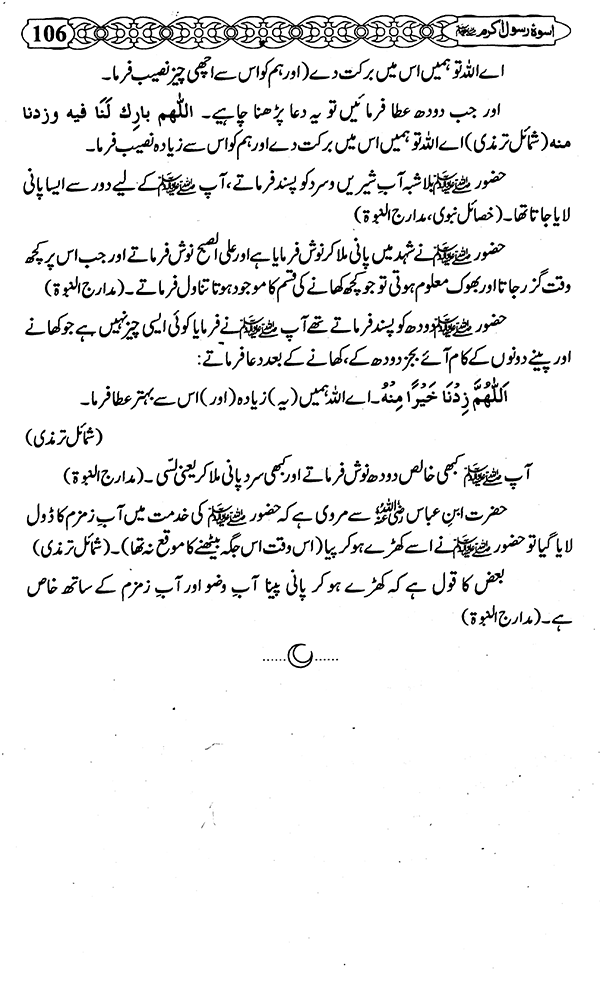 اسوۂ رسول اکرم ﷺ
106
اے اللہ تو ہمیں اس میں برکت دے (اور ہم کو اس سے اچھی چیز نصیب فرما۔
اور جب دودھ عطا فرمائیں تو یہ دعا پڑھنا چاہیے۔ اللهم بارك لَنَا فيه وزدنا
منه (شمائل ترمذی) اے اللہ تو ہمیں اس میں برکت دے اور ہم کو اس سے زیادہ نصیب فرما۔
حضور ﷺ بلا شبہ آب شیریں و سرد کو پسند فرماتے، آپ ﷺ کے لیے دور سے ایسا پانی
لایا جاتا تھا۔ (خصائل نبوی، مدارج النبوۃ)
حضور ﷺ نے شہد میں پانی ملا کر نوش فرمایا ہے اور علی الصبح نوش فرماتے اور جب اس پر کچھ
وقت گزر جاتا اور بھوک معلوم ہوتی تو جو کچھ کھانے کی قسم کا موجود ہوتا تناول فرماتے۔ (مدارج النبوۃ)
حضور ﷺ دودھ کو پسند فرماتے تھے آپ ﷺ نے فرمایا کوئی ایسی چیز نہیں ہے جو کھانے
اور پینے دونوں کے کام آئے بجز دودھ کے، کھانے کے بعد دعا فرماتے:
اَللّٰهُمَّ زِدْنَا خَيْرًا مِنْهُ۔ اے اللہ ہمیں (یہ) زیادہ (اور) اس سے بہتر عطا فرما۔
(شمائل ترمذی)
آپ ﷺ کبھی خالص دودھ نوش فرماتے اور کبھی سرد پانی ملا کر یعنی لسّی۔ (مدارج النبوۃ)
حضرت ابن عباس رضی اللہ عنہ سے مروی ہے کہ حضور ﷺ کی خدمت میں آب زمزم کا ڈول
لایا گیا تو حضور ﷺ نے اسے کھڑے ہو کر پیا (اس وقت اس جگہ بیٹھنے کا موقع نہ تھا)۔ (شمائل ترمذی)
بعض کا قول ہے کہ کھڑے ہو کر پانی پینا آب وضو اور آب زمزم کے ساتھ خاص
ہے۔ (مدارج النبوۃ)